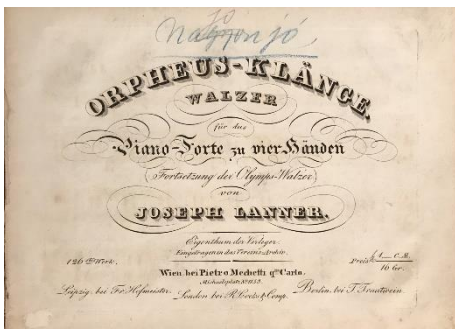 jó
Nagyon jó,
ORPHEUS-KLÄNGE.
WALZER
für das
Piano-Forte zu vier Händen
(Fortsetzung der Olymps-Walzer)
von
JOSEPH LANNER.
Eigenthum der Verleger.
Eingetragen in das Vereins-Archiv.
126tes Werk.
Wien, bei Pietro Mechetti qm Carlo.
Preis f. 1._ C.M.
16 Gr.
Michaelsplatz No 1153.
Leipzig, bei Fr. Hofmeister.
London bei R. Cocks & Comp.
Berlin, bei T. Trautwein.